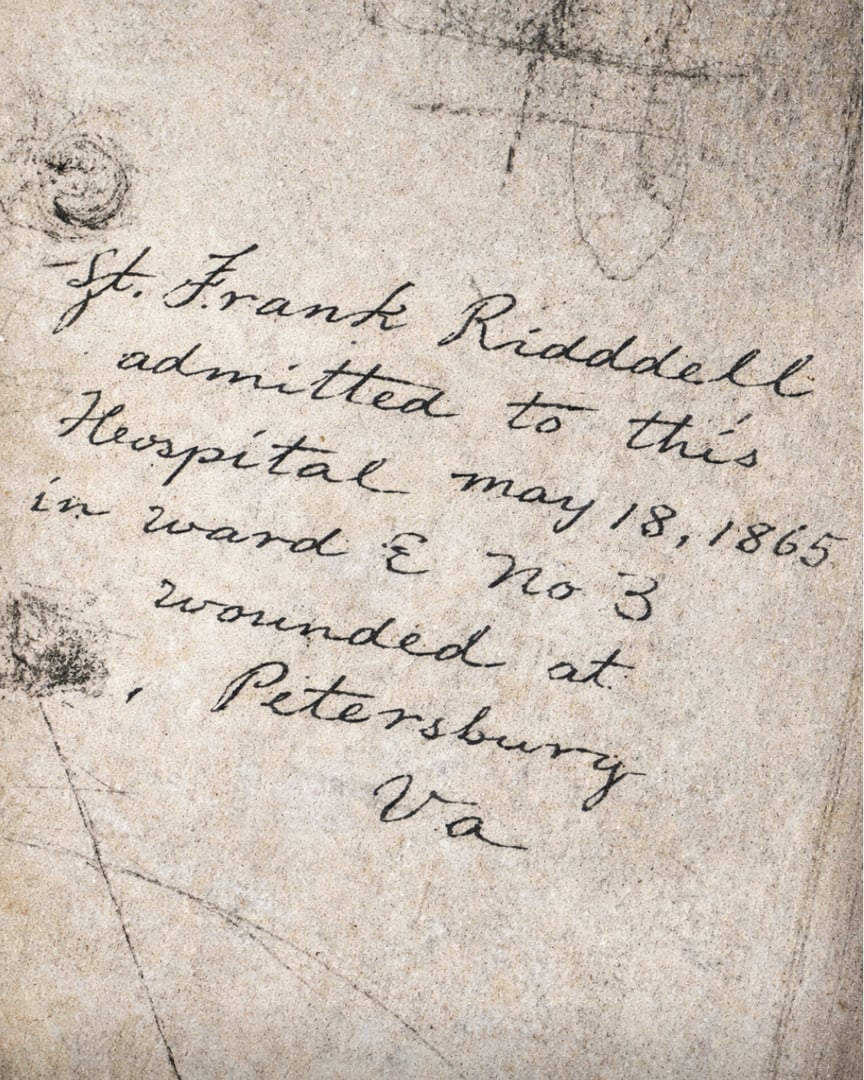 St. Frank Ridddell
admitted to this
Heospital may 18, 1865
in ward E No 3
wounded at
Petersbury
Va